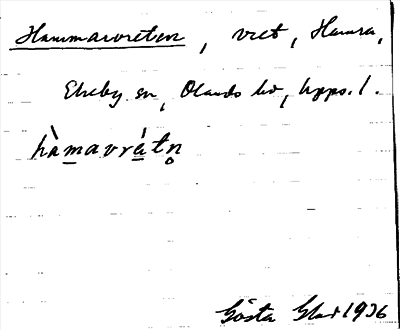 Hammarvreten, vret, Hamra,
Ekeby sn, Olands hd, Upps. l.
hàmavrátn̥
Gösta 1936